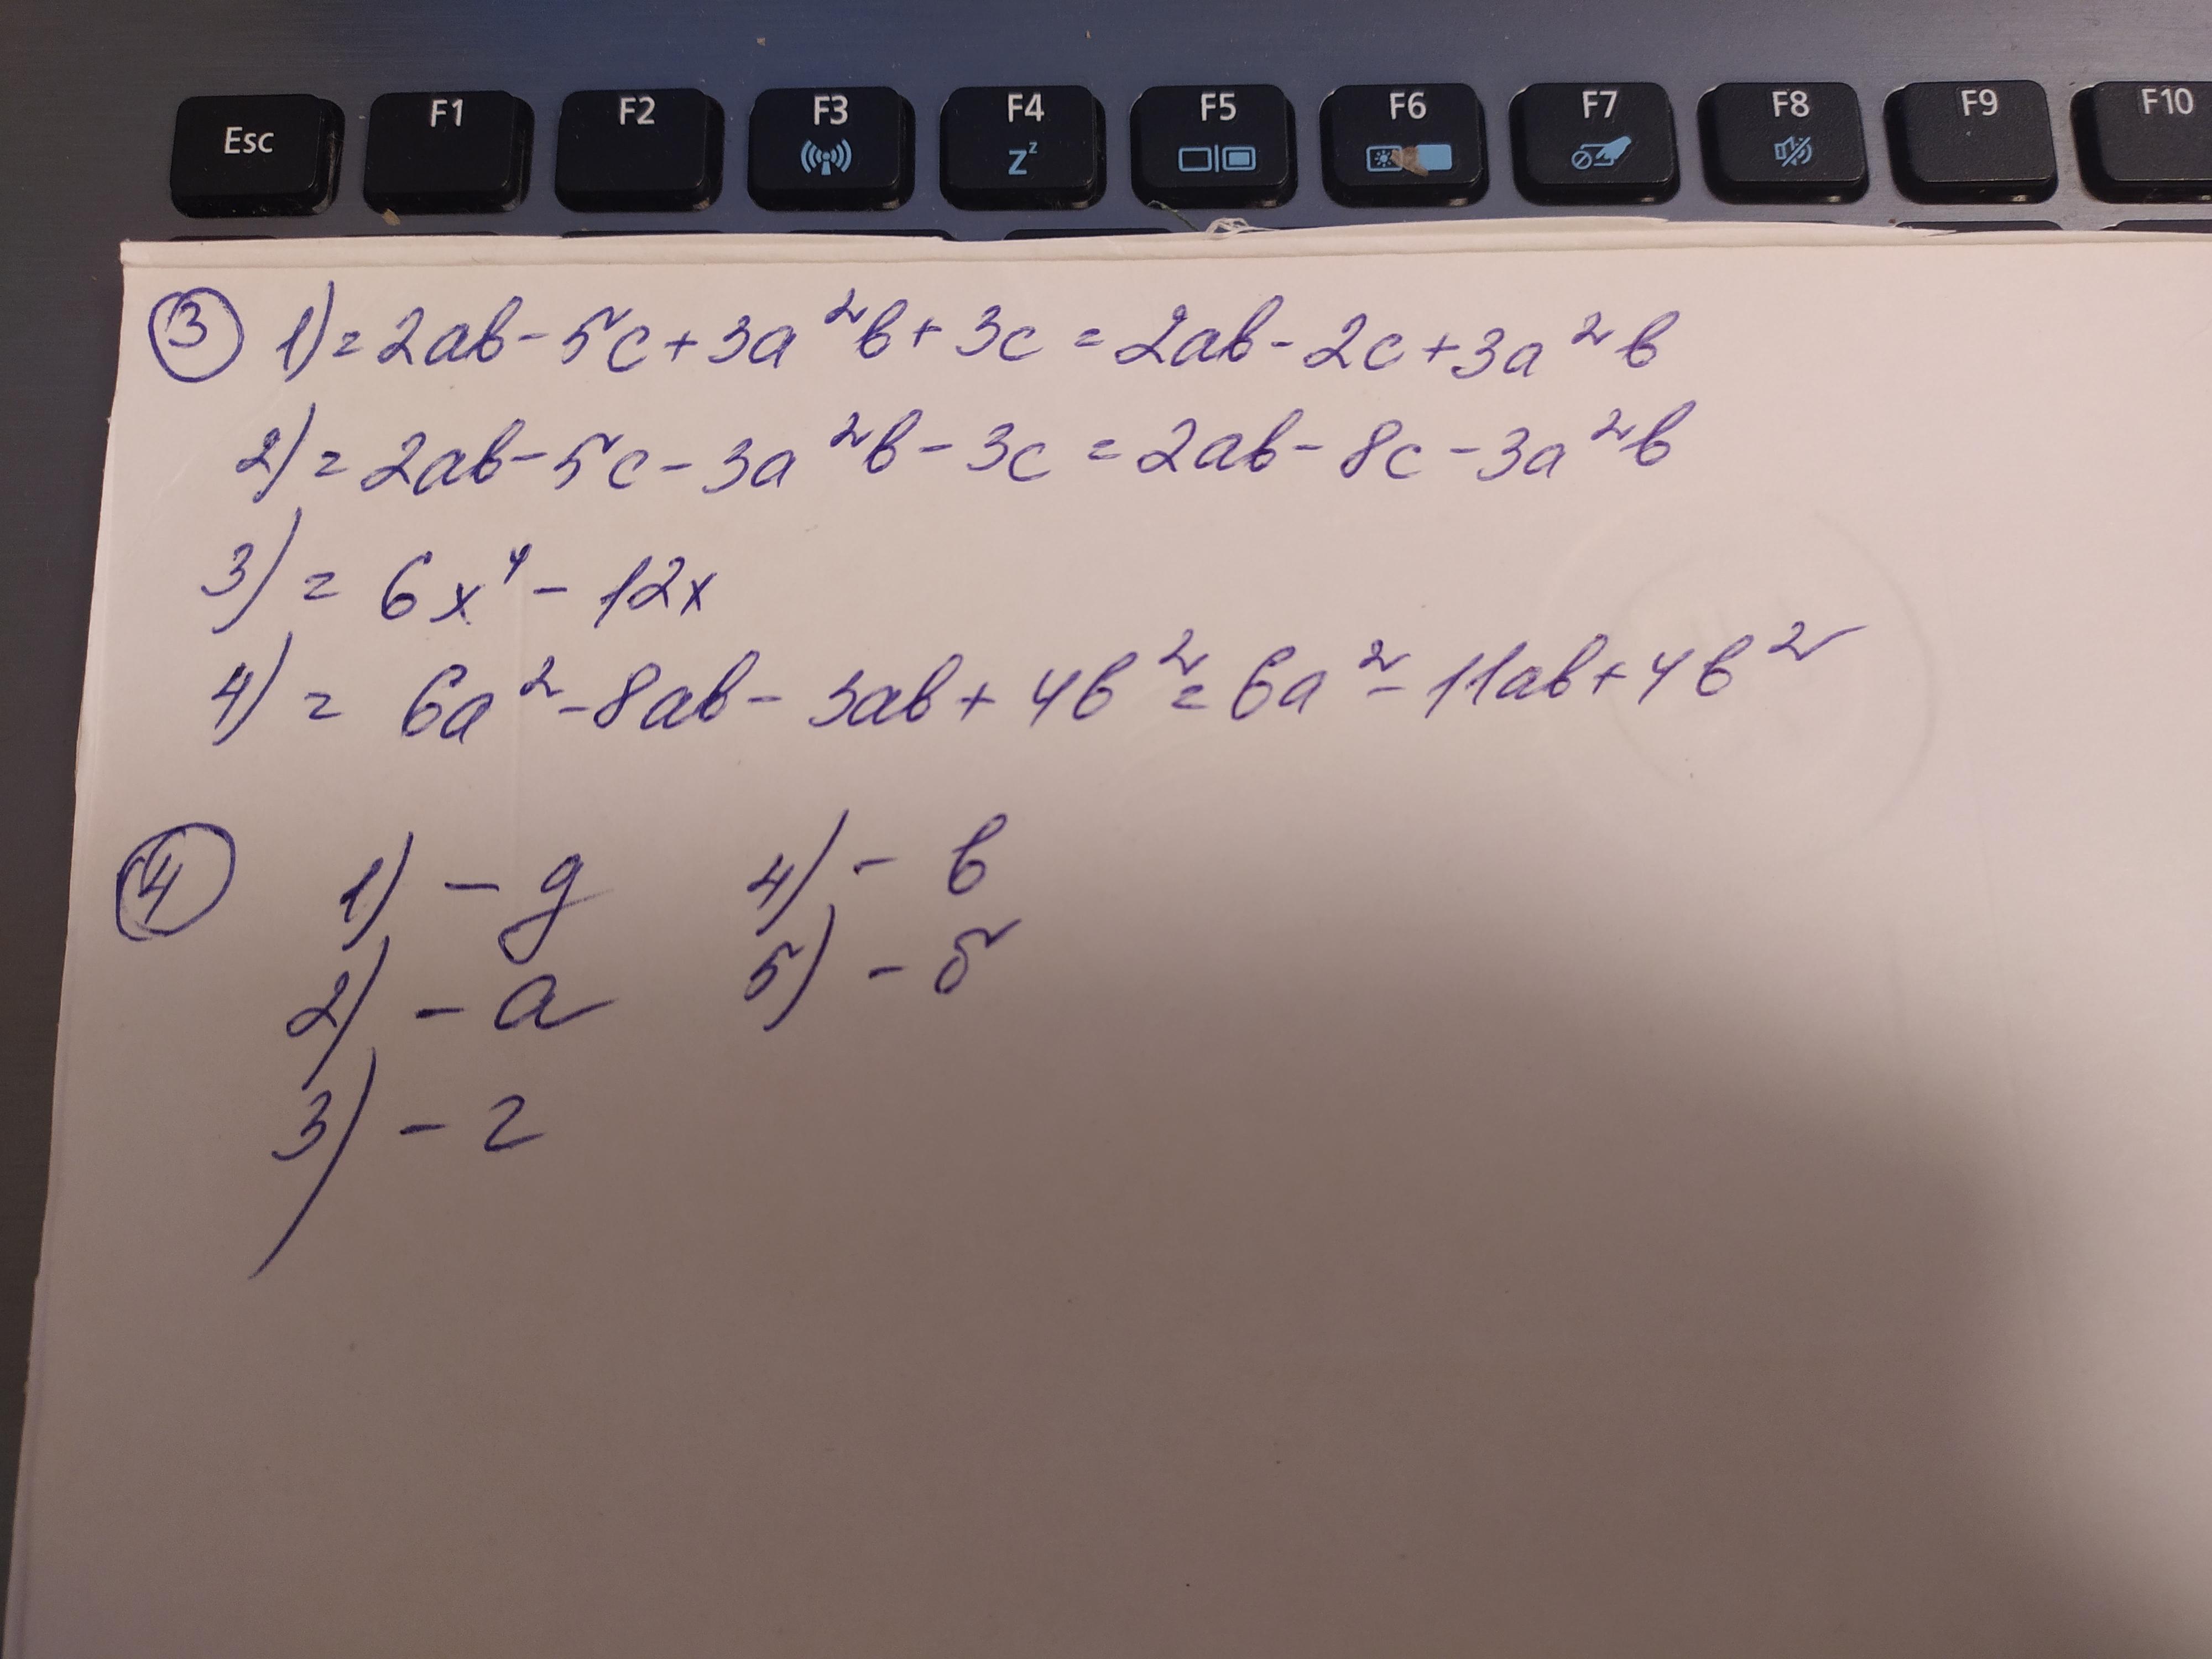 Esc F1 F2 F3 F4 F5 F6 F7 F8 F9 F10
Zz
③ 1) = 2ab - 5c + 3a²b + 3c = 2ab - 2c + 3a²b
2) = 2ab - 5c - 3a²b - 3c = 2ab - 8c - 3a²b
3) = 6x⁴ - 12x
4) = 6a² - 8ab - 3ab + 4b² = 6a² - 11ab + 4b²
④ 1) - д 4) - в
2) - а 5) - б
3) - г